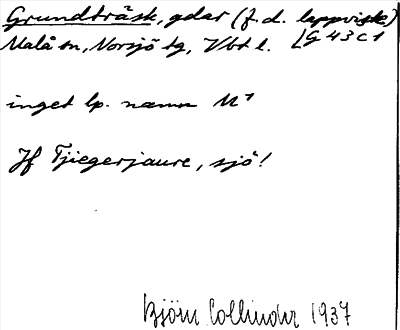 Grundträsk, gdar (f.d. lappviste)
Malå sn, Norsjö tg, Vbt l. [G 43 C 1
inget lp. namn M¹
Jf Tjiegerjaure, sjö!
Björn Collinder 1937